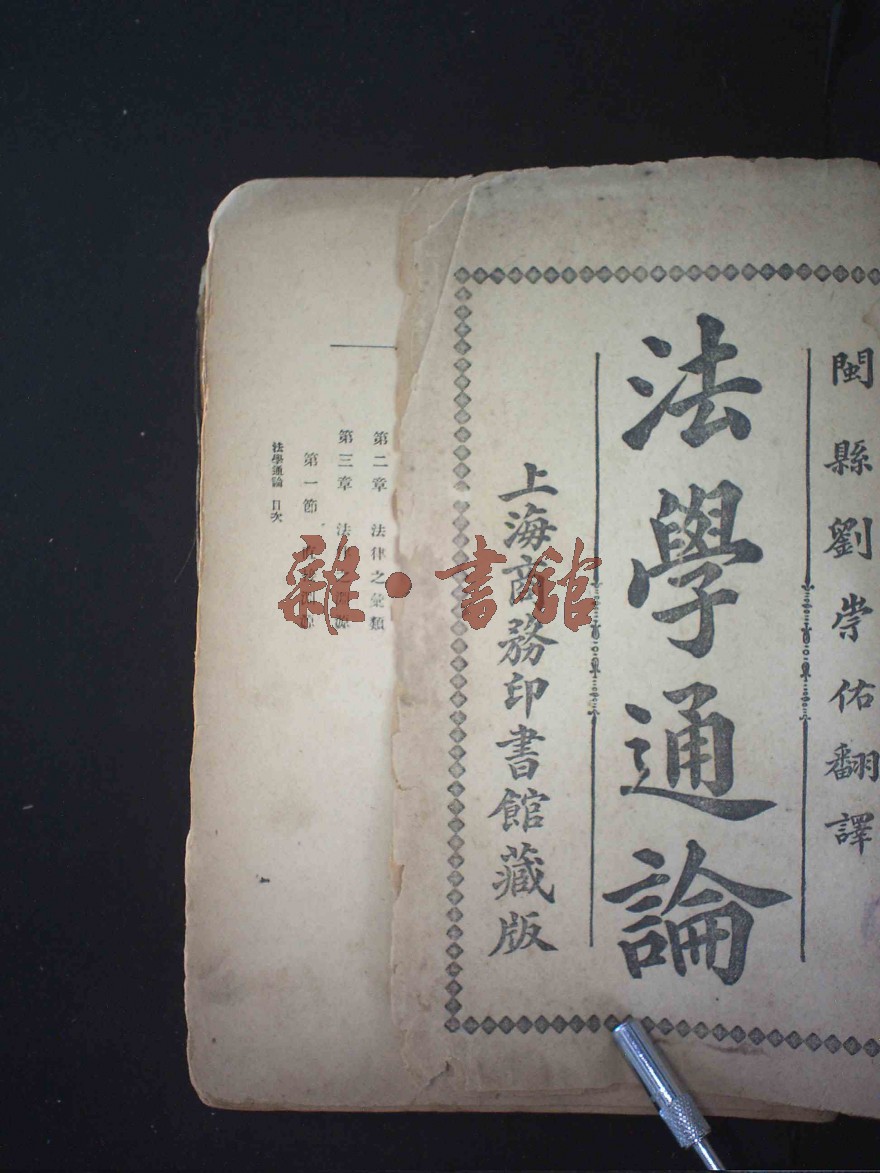 閩縣劉崇佑翻譯
法學通論
上海商務印書館藏版
第二章 法律之彙類
第三章 法律之淵源
第一節
法學通論 目次
雜·書館